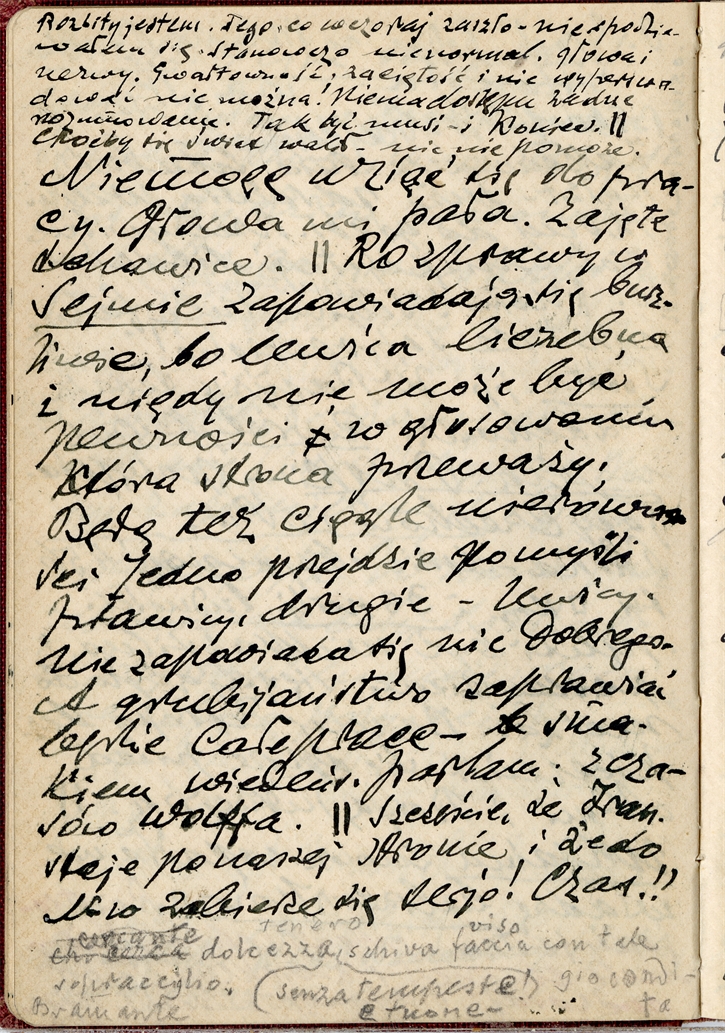 Rozbity jestem. Tego co wczoraj zaszło - nie spodzie-
wałem się. Stanowczo nienormal. głowa i
nerwy. Gwałtowność, zaciętość i nic wyperswa-
dować nie można! Niema dostępu żadne
rozumowanie. Tak być musi - i Koniec. ||
Choćby się świat walił - nic nie pomoże.
Niemogę wziąć się do pra-
cy. Głowa mi pała. Zajęte
|| Rozprawy w
Sejmie zapowiadają się burz-
liwie, bo lewica liczebna
i nigdy nie może być
pewności z w głosowaniu
Która strona przeważy.
Będą też ciągle nierówno
ści jedno przejdzie pomyśli
prawicy, drugie - lewicy.
nie zapowiada się nic Dobrego.
A grubijaństwo zaprawiać
będzie całe prace - sma-
kiem wiedeńs. parlam. z cza-
sów Wolffa. || Szczęście, że Fran.
staje po naszej stronie i że do
zabierze się serjo! Czas.!!
tenero viso
dolcezza, schiva faccia con tale
sopracciglio. (senza tempeste!) giocondi-
Bramante e tuone - tà